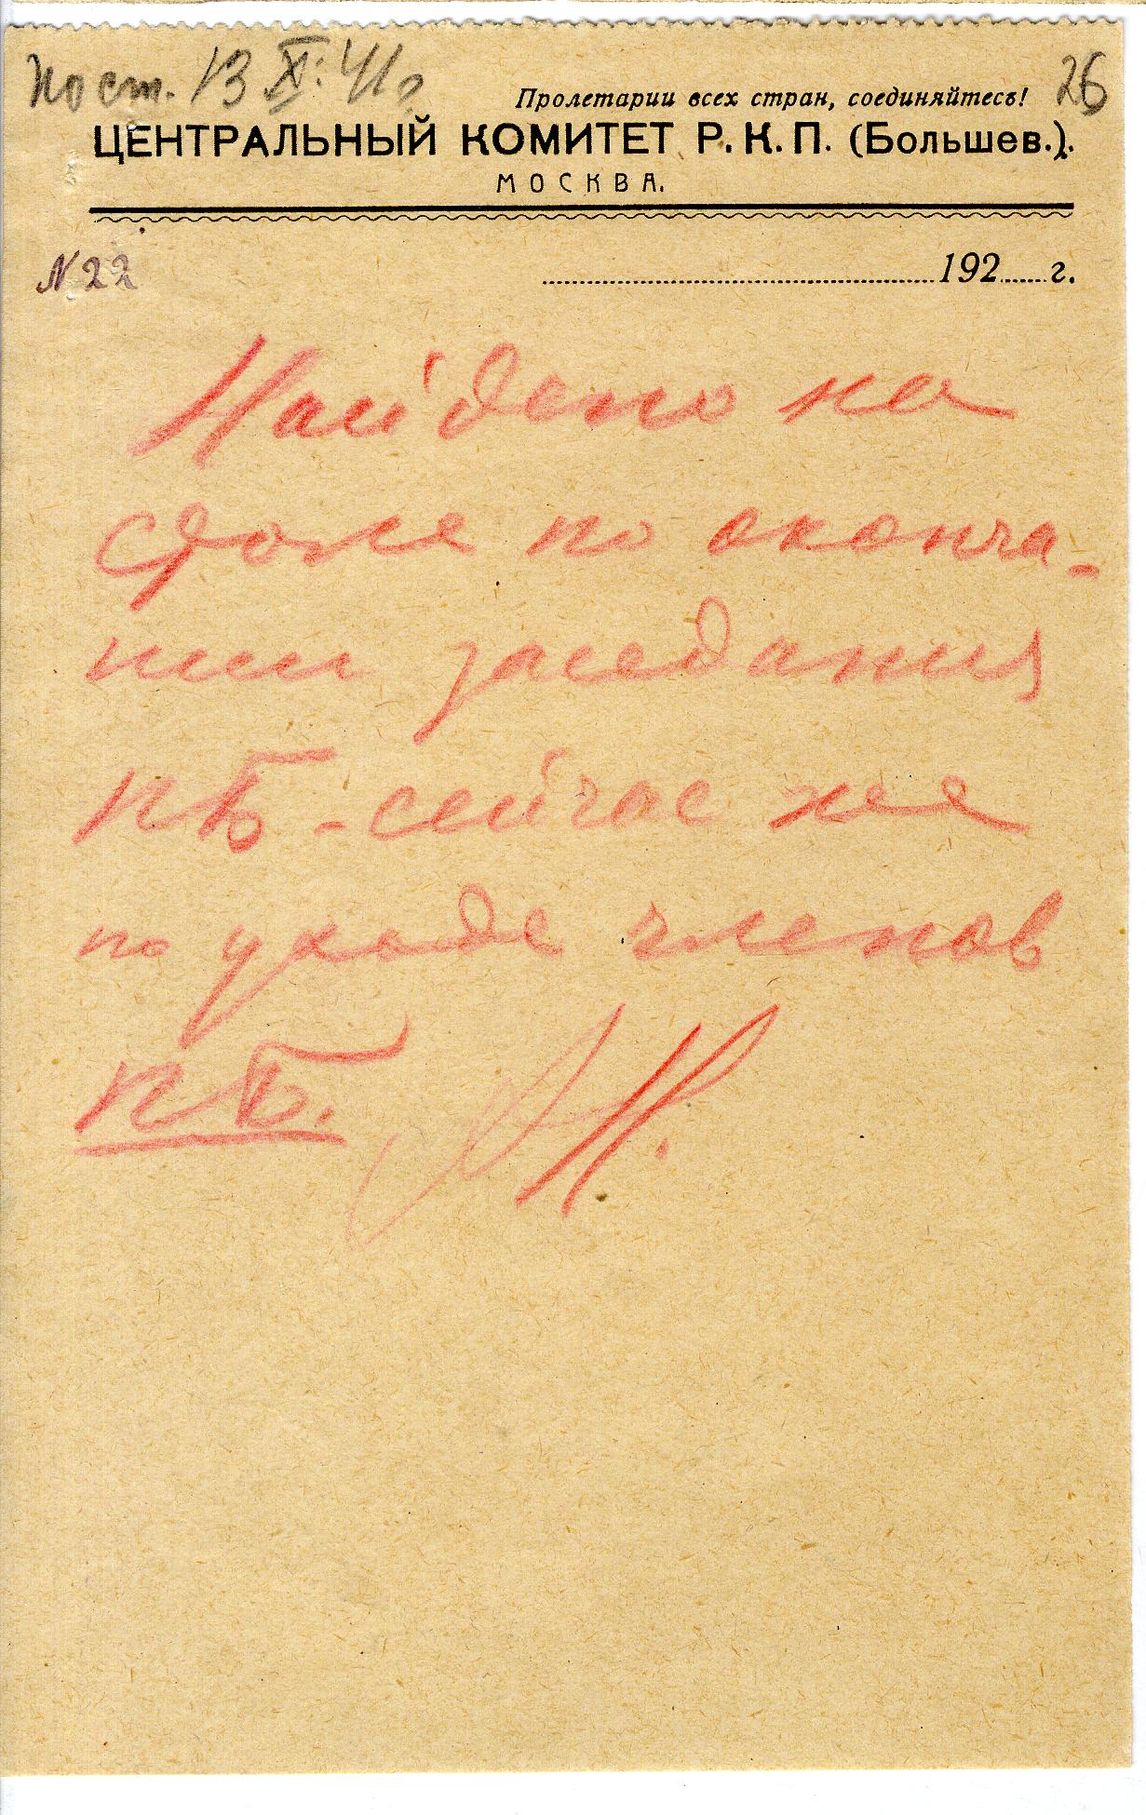 Пост. 13 XI. 41 г.
26
Пролетарии всех стран, соединяйтесь!
ЦЕНТРАЛЬНЫЙ КОМИТЕТ Р. К. П. (Большев.).
МОСКВА.
N 22
192 г.
Найдено на
столе по оконча-
нии заседания
ПБ - сейчас же
по уходе членов
ПБ.